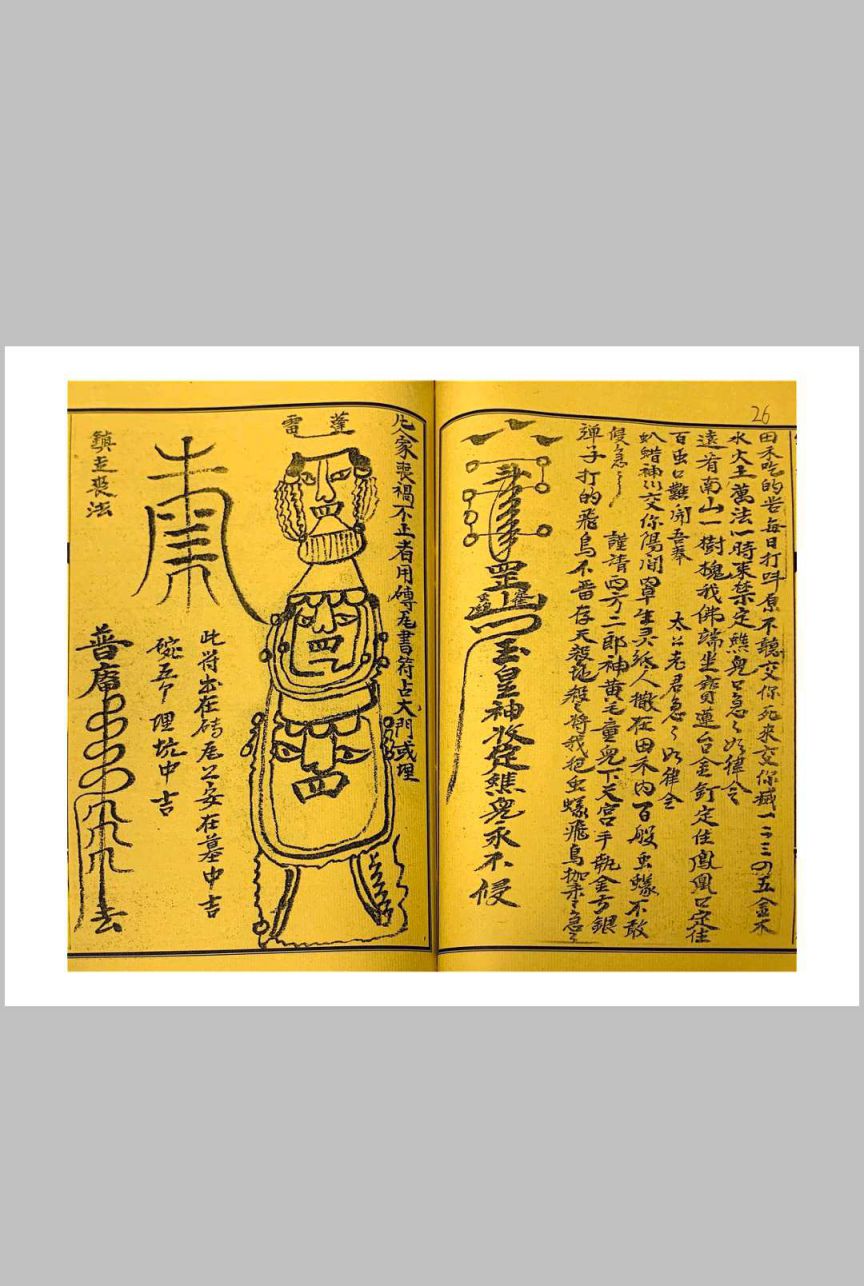 26
田禾吃的苦每日打呌原不聽交你死來交你滅一二三四五金木
水火土萬法一時來禁定鷦兒口急〻如律令
遠看南山一樹槐我佛端坐寶蓮台金釘定住鳳凰口定住
百虫口難開吾奉 太上老君急〻如律令
蜡神川交你陽间罩生灵紙人撒在田禾内百般虫蟻不敢
侵急〻 謹請西方二郎神黄毛童兒下天宫手執金弓銀
弹子打的飛鳥不番存天殺地殺〻将我把虫蟻飛鳥
罡
玉皇神收定鷦兒永不侵
凡人家喪禍不止者用磚瓦書符占大門或埋
蓬
雷
此符出在磚瓦上安在墓中吉
碗五个埋坑中吉
普庵
去
鎮重喪法